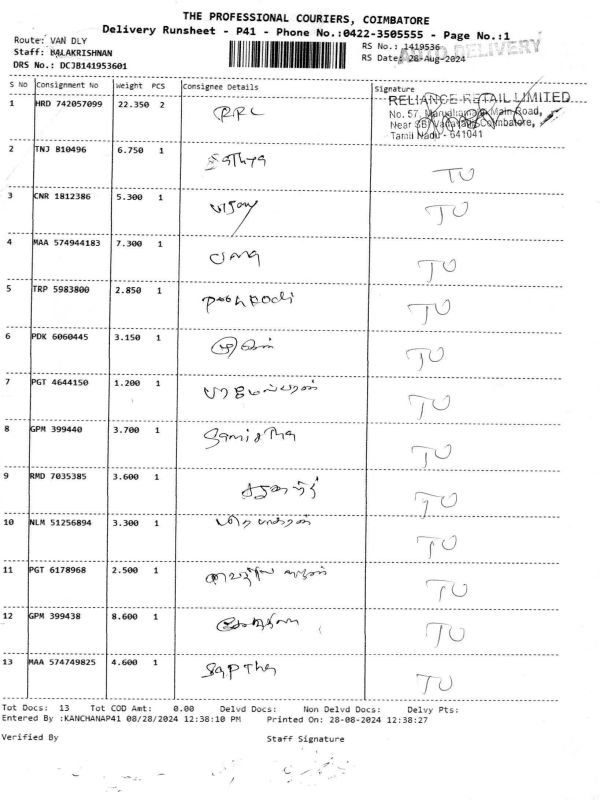 THE PROFESSIONAL COURIERS, COIMBATORE
Delivery Runsheet - P41 - Phone No.:0422-3505555 - Page No.:1
Route: VAN DLY
Staff: BALAKRISHNAN
DRS No.: DCJB141953601
RS No.: 1419536
RS Date: 28-Aug-2024
AUTO DELIVERY
S No Consignment No Weight PCS Consignee Details Signature
1 HRD 742057099 22.350 2 RRL
RELIANCE RETAIL LIMITED
No. 57, Main Road,
Near SBI Coimbatore,
Tamil Nadu - 641041
2 TNJ 810496 6.750 1 Sathya TU
3 CNR 1812386 5.300 1 TU
4 MAA 574944183 7.300 1 TU
5 TRP 5983800 2.850 1 TU
6 PDK 6060445 3.150 1 TU
7 PGT 4644150 1.200 1 TU
8 GPM 399440 3.700 1 TU
9 RMD 7035385 3.600 1 TU
10 NLM 51256894 3.300 1 TU
11 PGT 6178968 2.500 1 TU
12 GPM 399438 8.600 1 TU
13 MAA 574749825 4.600 1 TU
Tot Docs: 13 Tot COD Amt: 0.00 Delvd Docs: Non Delvd Docs: Delvy Pts:
Entered By :KANCHANAP41 08/28/2024 12:38:10 PM Printed On: 28-08-2024 12:38:27
Verified By Staff Signature